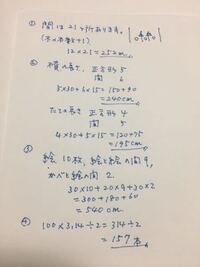 ① 間は21ヶ所あります。
(木の本数+1)
12×21=252cm
② 横の長さ 正方形 5
間 6
5×30+6×15=150+90
=240cm
たての長さ 正方形 4
間 5
4×30+5×15=120+75
=195cm
③ 絵10枚、絵と絵の間9、
かべと絵の間2、
30×10+20×9+30×2
=300+180+60
=540cm
④ 100×3.14÷2=314÷2
=157本